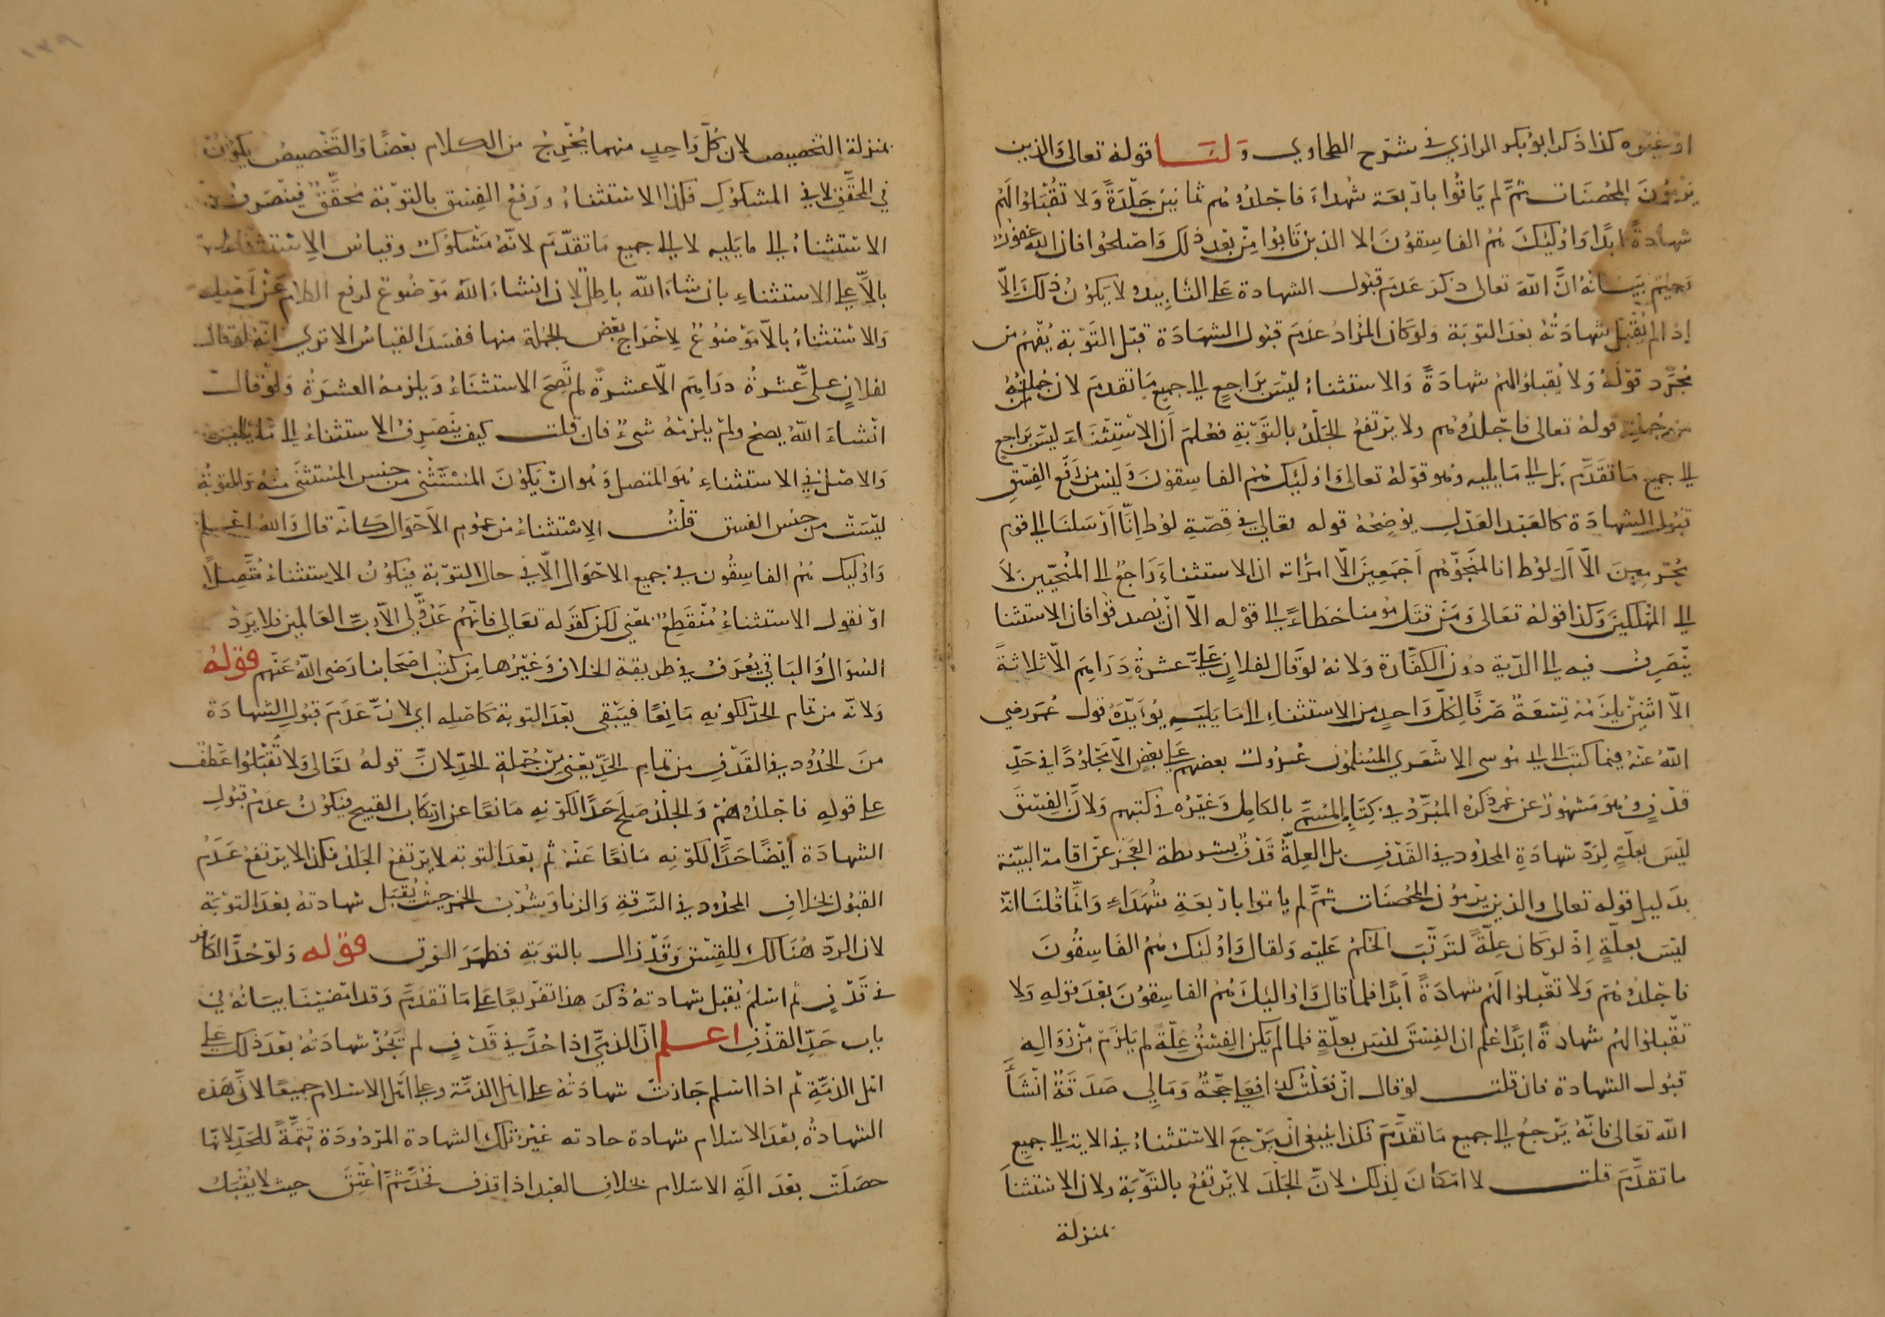 او غيره كذا ذكر ابو بكر الرازي في شرح الطحاوي وَلَنَا قوله تعالى والذين
يَرْمُونَ المحْصَنَات ثمَّ لم يَاتُوا باربعَة شُهداءَ فاجْلدُوهُم ثمانينَ جَلْدَةً وَلا تقْبَلوُا لَهُمْ
شهادةً ابدًا وَاوُلئِكَ هُمُ الفاسِقوُنَ الا الذين تَابُوا مِنْ بَعْد ذلك وَاصْلحُوا فان اللهَ غفورٌ
رَحيمٌ بَيَانهُ انَّ اللهَ تعالى ذكرَ عَدَمَ قبُول الشهادة عَلى التابيد لا يَكوُنُ ذلكَ الّا
اذا لم يُقْبَل شهادَتُهُ بَعْدَ التوبَة وَلو كَانَ المُرَادُ عَدَمَ قبُول الشهَادَة قَبْلَ التّوْبَة يُفهَمُ من
مُجَرَّد قوْلهُ وَلا تقبلوُا لهمْ شهادَةً وَالاستثناءُ ليْسَ بَراجعٍ الى جميع مَا تقدمَ لان
من جُمْلته قولهُ تعالى فاجْلدُوهُم ولا يرْتَفعُ الجَلْدُ بالتَوْبَةِ فعُلمَ أن الاسْتِثْنَاءَ ليْسَ بَراجعٍ
الى جميع مَا تقَدَّم بَل الى مَا يليه وهُو قوْلهُ تعالى وَاوُلئِكَ هُمُ الفاسِقوُنَ وَليْسَ من رَفْعِ الفِسْقِ
قبُول الشهادَة كالعَبْد العَدْل يوُضِحُهُ قوله تعالى في قصّةِ لوُط اِنَّا ارْسَلنَا الى قوم
مُجْرِمينَ الّا آلَ لوُط انا لمنَجّوُهُم اَجْمَعِينَ الّا امرَأته ان الاستثناءَ رَاجعٌ الى المُنَجَّيينَ لَا
الى المهْلكينَ وَكذا قولهُ تعَالى وَمَنْ قتَلَ مؤمنا خطاءً الى قوْله الّا انْ يَصدقوُا فان الاستثنا
يَنْصَرِف فيه الى الدّية دوُن الكفّارَة وَلانهُ لوْ قال لفلانٍ عَليَّ عشرةُ دَرَاهِمَ الّا ثلاثةً
الّا اثنيْن يلزَمُهُ تِسْعَةٌ صَرْفًا لِكلِّ وَاحدٍ من الاستثناءِ الى مَا يَليَهِ يؤيّدُهُ قول عُمَر رضي
اللهُ عنهُ فيمَا كتبَ الى ابي موُسى الاشعَري المُسْلموُن عُدوُلٌ بعضهم عَلى بَعْضٍ الّا مَجْلوُدًا في حَدِّ
قذفٍ وهُوَ مَشهوُرٌ عن عُمَر ذكرَهُ المُبَرَّدُ في كِتَابِه المُسَمَّى بالكامِل وَغيْرُهُ في كتبهم وَلانَّ الفِسْقَ
ليْسَ بعِلّةٍ لِرَدِّ شهادَةِ المحدُودِ في القَذْف بل العِلّةُ قَذْفٌ بشريطة العَجْز عَنْ اقامَة البَيّنة
بدَليل قوله تعالى والذين يَرْموُنَ المُحْصَنَات ثمَّ لم ياتوا باربَعَةِ شُهَدَاءِ وَانَّما قلنَا انهُ
ليْسَ بعِلّةٍ اِذْ لوْ كان عِلّةً لتَرَتَّبَ الحُكمُ عَليْه وَلقال وَاوُلئِكَ هُمُ الفَاسِقُونَ
فاجْلدُوهُمْ وَلا تقْبلوُا لَهُمْ شهَادَةً اَبَدًا فلمّا قالَ وَاوُلئِكَ هُمُ الفاسِقوُنَ بَعْدَ قوْلهِ وَلا
تقْبلوُا لهُمْ شهادةً ابَدًا عُلِمَ ان الفِسْقَ ليْسَ بعِلّةٍ فلمّا لم يَكنِ الفِسْقُ عِلّةً لم يَلزَمْ مِنْ زوَالِه
قبُول الشهادة فان قلت لو قال انْ فعَلْتُ كذا فعَليَّ حَجّةٌ وَمَالي صَدَقةٌ انْ شَاءَ
الله تعَالى فانّهُ يَرْجعُ الى جميع مَا تقدَّمَ فكذا يَنبغي أنْ يَرْجعَ الاسْتثناءُ في الاية الى جميع
ما تقدَّمَ قلت لا امْكانَ لِذلكَ لانَّ الجَلْدَ لا يَرْتَفعُ بالتّوْبَة ولان الاسْتثنَا
بمنزلة
بمنزلة التخصيص لان كلَّ وَاحدٍ منهما يُخْرِجُ من الكلام بَعْضًا وَالتَّخْصيصُ يَكوُنُ
في المحَقَّقِ لا في المشكوُكِ فكذا الاسْتثناءُ ورَفعُ الفِسْق بالتوْبَة مُحَقَّقٌ فينْصَرفُ
الاسْتثناءُ الى مَا يَليه لا الى جميع مَا تقدّمَ لانّهُ مَشكوُك وقياسُ الاستثناء
بالّا عَلى الاستثناءِ بان شاءَ الله باطِلٌ لان انشاءَ اللهُ مَوْضوُعٌ لرفع الكلام عَنْ اصْلِه
وَالاسْتثناءُ بالّا مَوْضوُعٌ لِاخْرَاج بَعْض الجُملة منها ففسَدَ القياسُ الا ترى انّه لو قال
لفلانٍ عَلىَّ عَشرةُ درَاهِمَ الّا عشرةً لم يَصِحَّ الاستثنَاءُ وَيلزمهُ العشرَةُ وَلوْ قال
انْشاءَ اللهُ يصحُ ولمْ يلزمْهُ شيءٌ فان قلت كيف يَنْصَرِفُ الاستثناءُ الى مَا يليه
وَالاصْلُ في الاستثناءِ هُوَ المتصل وَهُو انْ يَكوُنَ المُسْتَثْنى من جنس المُسْتثنى منهُ وَالتوْبَةُ
ليْسَتْ من جنس الفسق قلْتُ الاِسْتثناءُ من عمُوم الاَحْوَال كَانّه قالَ وَاللهُ اعْلم
وَاوُلئِكَ هُمُ الفاسِقُون في جميع الاحْوَال الّا في حال التوْبَة فيَكوُنُ الاستثناءُ مُتَّصِلًا
اوْ نقول الاستثناءُ مُنْقَطِعٌ بمعْنى لكن كقوله تعَالى فانّهُمْ عَدُوٌّ لي الّا رَبَّ العَالمين فلا يَرِدُ
السُّوَالُ وَالبَاقي يُعْرَفُ في طريقة الخلاف وَغيْرها مِن كتُبِ اصْحَابنا رَضي اللهُ عَنْهم قوْلهُ
وَلانّه من تمام الحدّ لكونه مَانِعًا فيَبْقى بَعْدَ التوبة كاصْلِه اي لانَّ عَدَمَ قبُولِ الشهادَة
منَ الحُدوُد في القَذْفِ من تمام الحَدّ يَعْني مِنْ جُمْلةِ الحَدِّ لانَّ قولهُ تعَالى وَلا تقْبَلوُا عَطْفٌ
على قولهِ فاجْلدُوهُمْ وَالجَلدُ صَلحَ حَدًّا لكوْنِه مَانعًا عن ارتكاب القبيح فيَكوُنُ عدَمُ قبُولِ
الشهادَة أيْضًا حَدًّا لكوْنِه مَانعًا عَنْهُ ثم بَعْدَ التوبه لا يرْتفعُ الجَلدُ فكذا لا يرْتفعُ عَدَمُ
القبُول بخلافِ المحدُود في السّرقةِ وَالزنا وَشُرْبِ الخمر حيْثُ يُقبَل شهادتهُ بَعْدَ التوْبَة
لان الردّ هُنَالك للفِسْق وَقَدْ زال بالتوبَةِ فظهرَ الفرْق قوْله وَلوْ حُدَّ الكافر
في قَذْفٍ ثم اسْلمَ يُقبل شهادتهُ ذُكرَ هذا تفْريعًا عَلى مَا تقدَّمَ وَقد امْضيْنَا بيَانهُ في
باب حَدِّ القذْفِ اعلم انَّ الذميَّ اذا حُدَّ في قَذفٍ لم تَجُزْ شهادَتهُ بَعْدَ ذلكَ عَلى
اهْل الذمّةِ ثم اذا اسْلمَ جَازتْ شهادَتُهُ على اهْل الذمّة وعلى اهْل الاسْلام جميعًا لانَّ هَذه
الشهادةَ بَعْدَ الاسْلام شهادة حادثه غيْرُ تلكَ الشهادة المرْدوُدَة تَتِمَّةً للحَدّ لانّها
حصَلَتْ بعْدَ آلَةِ الاسْلام بخلافِ العَبْد اذا قذف فحُدَّ ثمَّ اُعْتِقَ حيث لا يُقْبَل
١٣٩